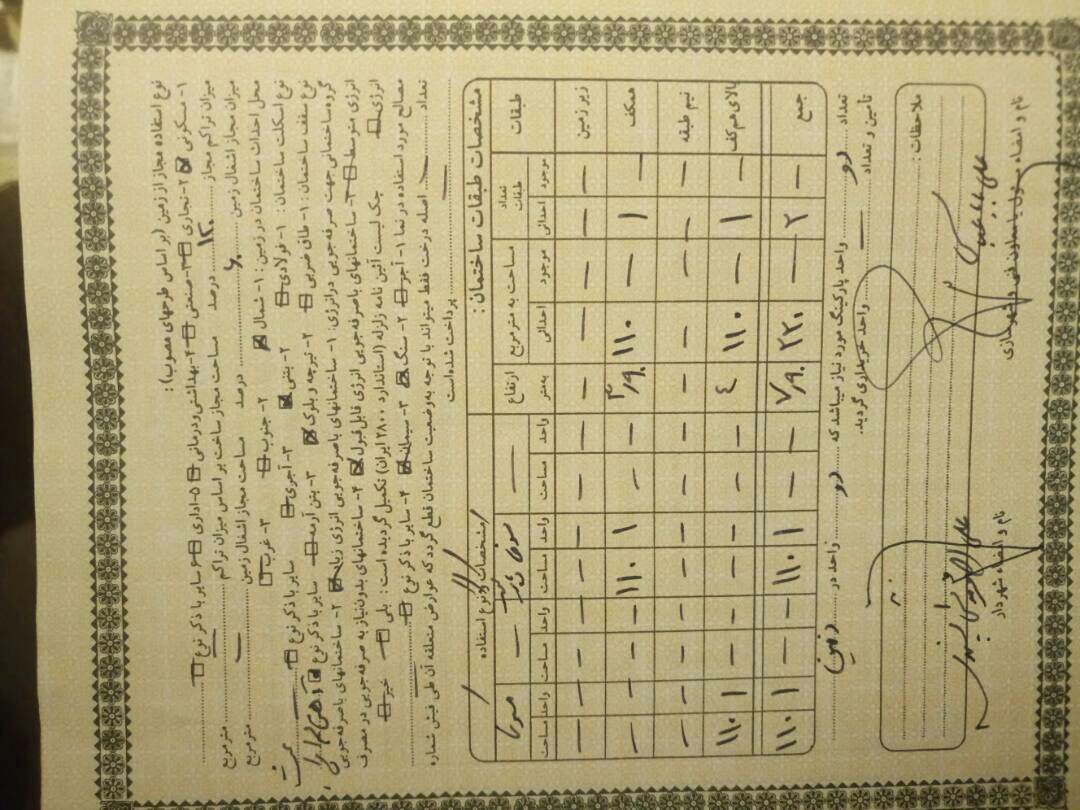 نوع استفاده مجاز از زمین (بر اساس طرحهای مصوب):
۱- مسکونی ☒ ۲- تجاری ☐ ۳- صنعتی ☐ ۴- بهداشتی و درمانی ☐ ۵- اداری ☐ ۶- سایر با ذکر نوع ☐
میزان تراکم مجاز ۱۲۰ درصد مساحت مجاز ساخت بر اساس میزان تراکم — مترمربع
میزان مجاز اشغال زمین ۶۰ درصد مساحت مجاز اشغال زمین — مترمربع
محل احداث ساختمان در زمین: ۱- شمال ☒ ۲- جنوب ☐ ۳- غرب ☐
نوع اسکلت ساختمان: ۱- فولادی ☐ ۲- بتنی ☒ ۳- آجری ☐ سایر با ذکر نوع ☐
نوع سقف ساختمان: ۱- طاق ضربی ☐ ۲- تیرچه و بلوک ☒ ۳- بتن آرمه ☐ سایر با ذکر نوع ☒
گروه ساختمانی جهت صرفه جویی در انرژی: ۱- ساختمانهای با صرفه جویی انرژی زیاد ☒ ۲- ساختمانهای با صرفه جویی
انرژی متوسط ☐ ۳- ساختمانهای با صرفه جویی انرژی قابل قبول ☒ ۴- ساختمانهای بدون نیاز به صرفه جویی در مصرف
انرژی ☐ چک لیست آئین نامه زلزله (استاندارد ۲۸۰۰ ایران) تکمیل گردیده است: بلی ☐ خیر ☐
مصالح مورد استفاده در نما ۱- آجر ☐ ۲- سنگ ☒ ۳- سیمان ☒ ۴- سایر با ذکر نوع ☐
تعداد — اصله درخت فقط میتواند با توجه به وضعیت ساختمان قطع گردد که عوارض متعلقه آن طی فیش شماره
— پرداخت شده است
مشخصات طبقات ساختمان:
طبقات تعداد طبقات مساحت به مترمربع ارتفاع مشخصات و نوع استفاده
موجود احداثی موجود احداثی به متر واحد مساحت واحد مساحت واحد مساحت واحد مساحت
زیر زمین — — — — — — — — — — — — —
همکف — ۱ — ۱۱۰ ۳/۹۰ — — ۱ ۱۱۰ — — — —
نیم طبقه — — — — — — — — — — — — —
بالای هم کف — ۱ — ۱۱۰ ۴ — — — — — — ۱ ۱۱۰
جمع — ۲ — ۲۲۰ ۷/۹۰ — — ۱ ۱۱۰ — — ۱ ۱۱۰
تعداد دو واحد پارکینگ مورد نیاز میباشد که دو واحد در زمین
تأمین و تعداد — واحد خریداری گردید.
ملاحظات:
نام و امضاء مسئول یا معاون فنی و شهرسازی
نام و امضاء شهردار